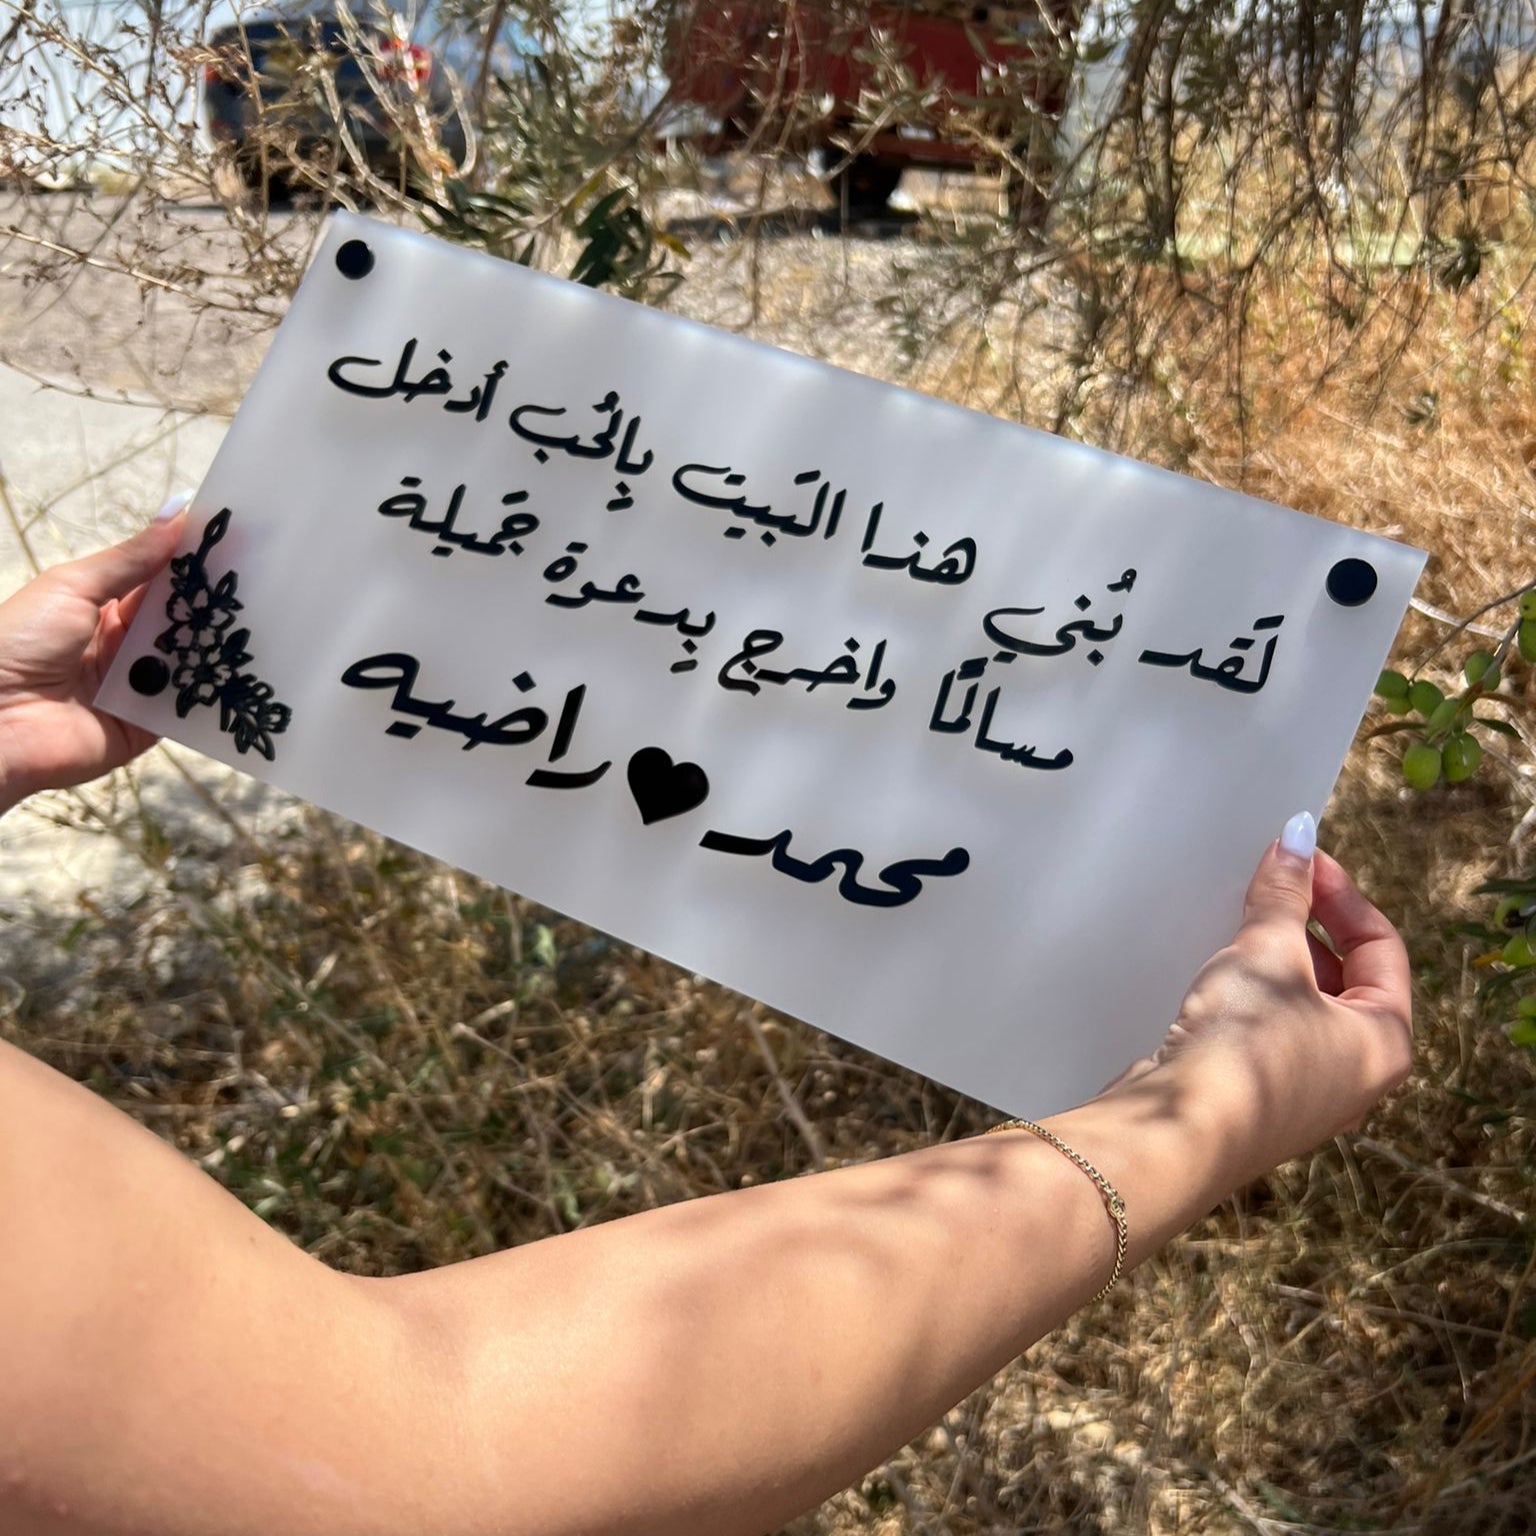 لَقَد بُني هذا البَيت بِالحُب أدخل
مسالمًا واخرج بِدعوة جَميلة
محمد♥راضيه